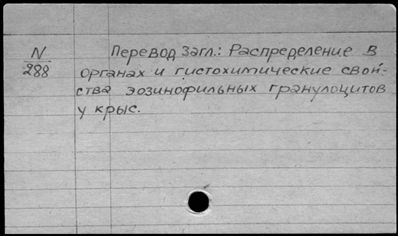 N Перевод загл.: Распределение в
288 органах и гистохимические свой-
ства эозинофильных гранулоцитов
у крыс.